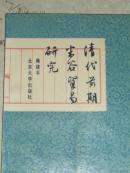 清代前期
米谷贸易
研究
北京大学出版社